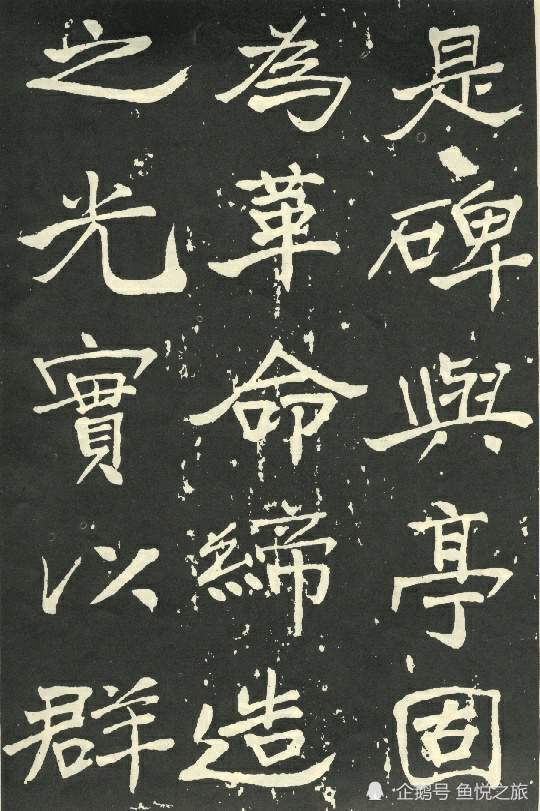 是碑與亭固
為革命締造
之光實以群
企鹅号 鱼悦之旅